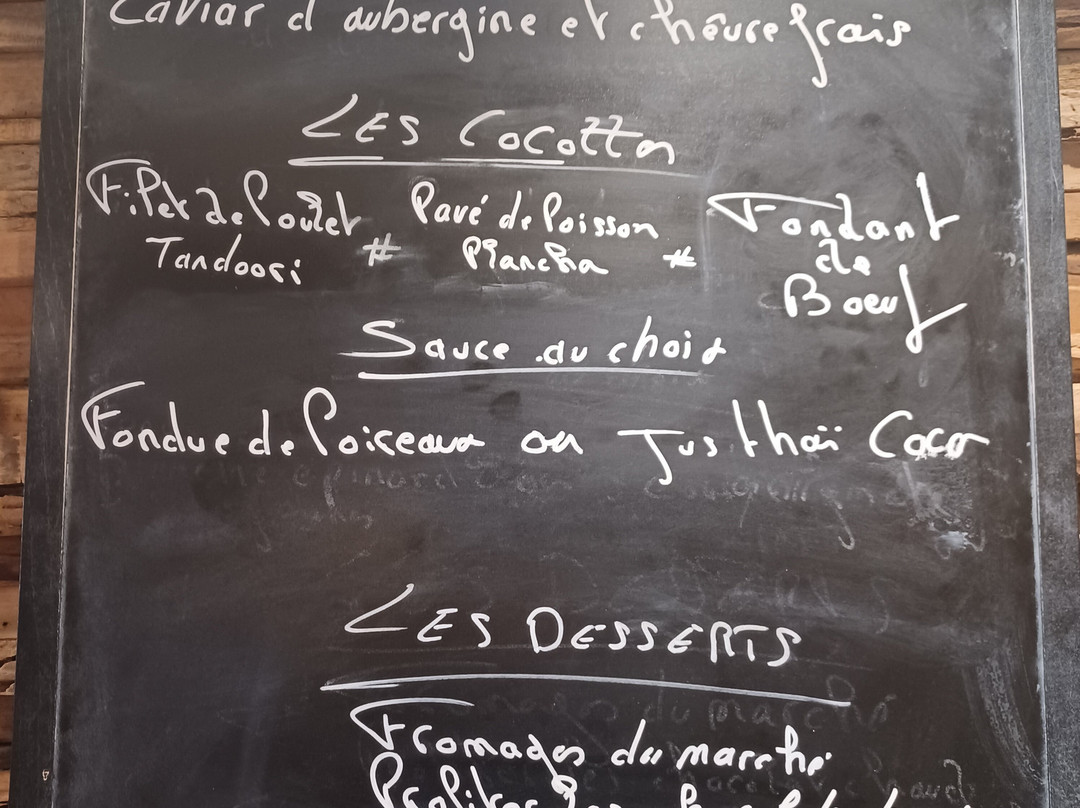 Caviar d'aubergine et chèvre frais
LES Cocottes
Filet de Poulet Tandoori # Pavé de Poisson Plancha # Fondant de Boeuf
Sauce au choix
Fondue de Poireaux ou Jus thaï Coco
LES DESSERTS
Fromages du marché